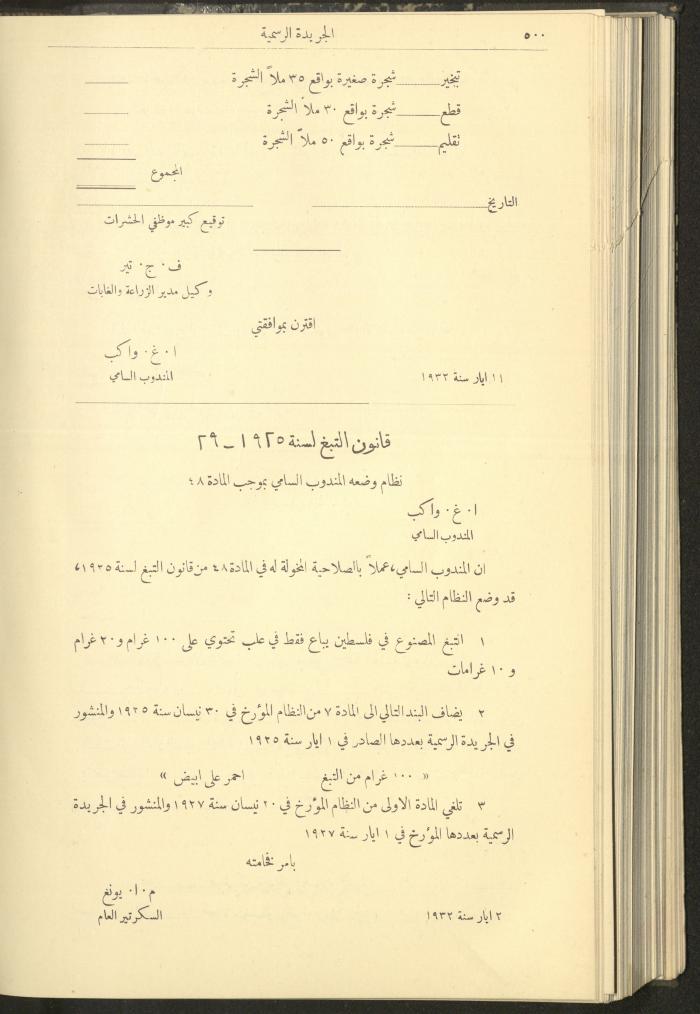 ٥٠٠
الجريدة الرسمية
تبخير شجرة صغيرة بواقع ٣٥ ملاً الشجرة
قطع شجرة بواقع ٣٠ ملاً الشجرة
تقليم شجرة بواقع ٥٠ ملاً الشجرة
المجموع
التاريخ
توقيع كبير موظفي الحشرات
ف٠ ج٠ تير
وكيل مدير الزراعة والغابات
اقترن بموافقتي
ا٠ غ٠ واكب
١١ ايار سنة ١٩٣٢
المندوب السامي
قانون التبغ لسنة ١٩٢٥ – ٢٩
نظام وضعه المندوب السامي بموجب المادة ٤٨
ا٠ غ٠ واكب
المندوب السامي
ان المندوب السامي، عملاً بالصلاحية المخولة له في المادة ٤٨ من قانون التبغ لسنة ١٩٢٥،
قد وضع النظام التالي :
١ التبغ المصنوع في فلسطين يباع فقط في علب تحتوي على ١٠٠ غرام و٢٠ غرام
و ١٠ غرامات
٢ يضاف البند التالي الى المادة ٧ من النظام المؤرخ في ٣٠ نيسان سنة ١٩٢٥ والمنشور
في الجريدة الرسمية بعددها الصادر في ١ ايار سنة ١٩٢٥
« ١٠٠ غرام من التبغ احمر على ابيض »
٣ تلغي المادة الاولى من النظام المؤرخ في ٢٠ نيسان سنة ١٩٢٧ والمنشور في الجريدة
الرسمية بعددها المؤرخ في ١ ايار سنة ١٩٢٧
بامر فخامته
م٠ ا٠ يونغ
٢ ايار سنة ١٩٣٢
السكرتير العام